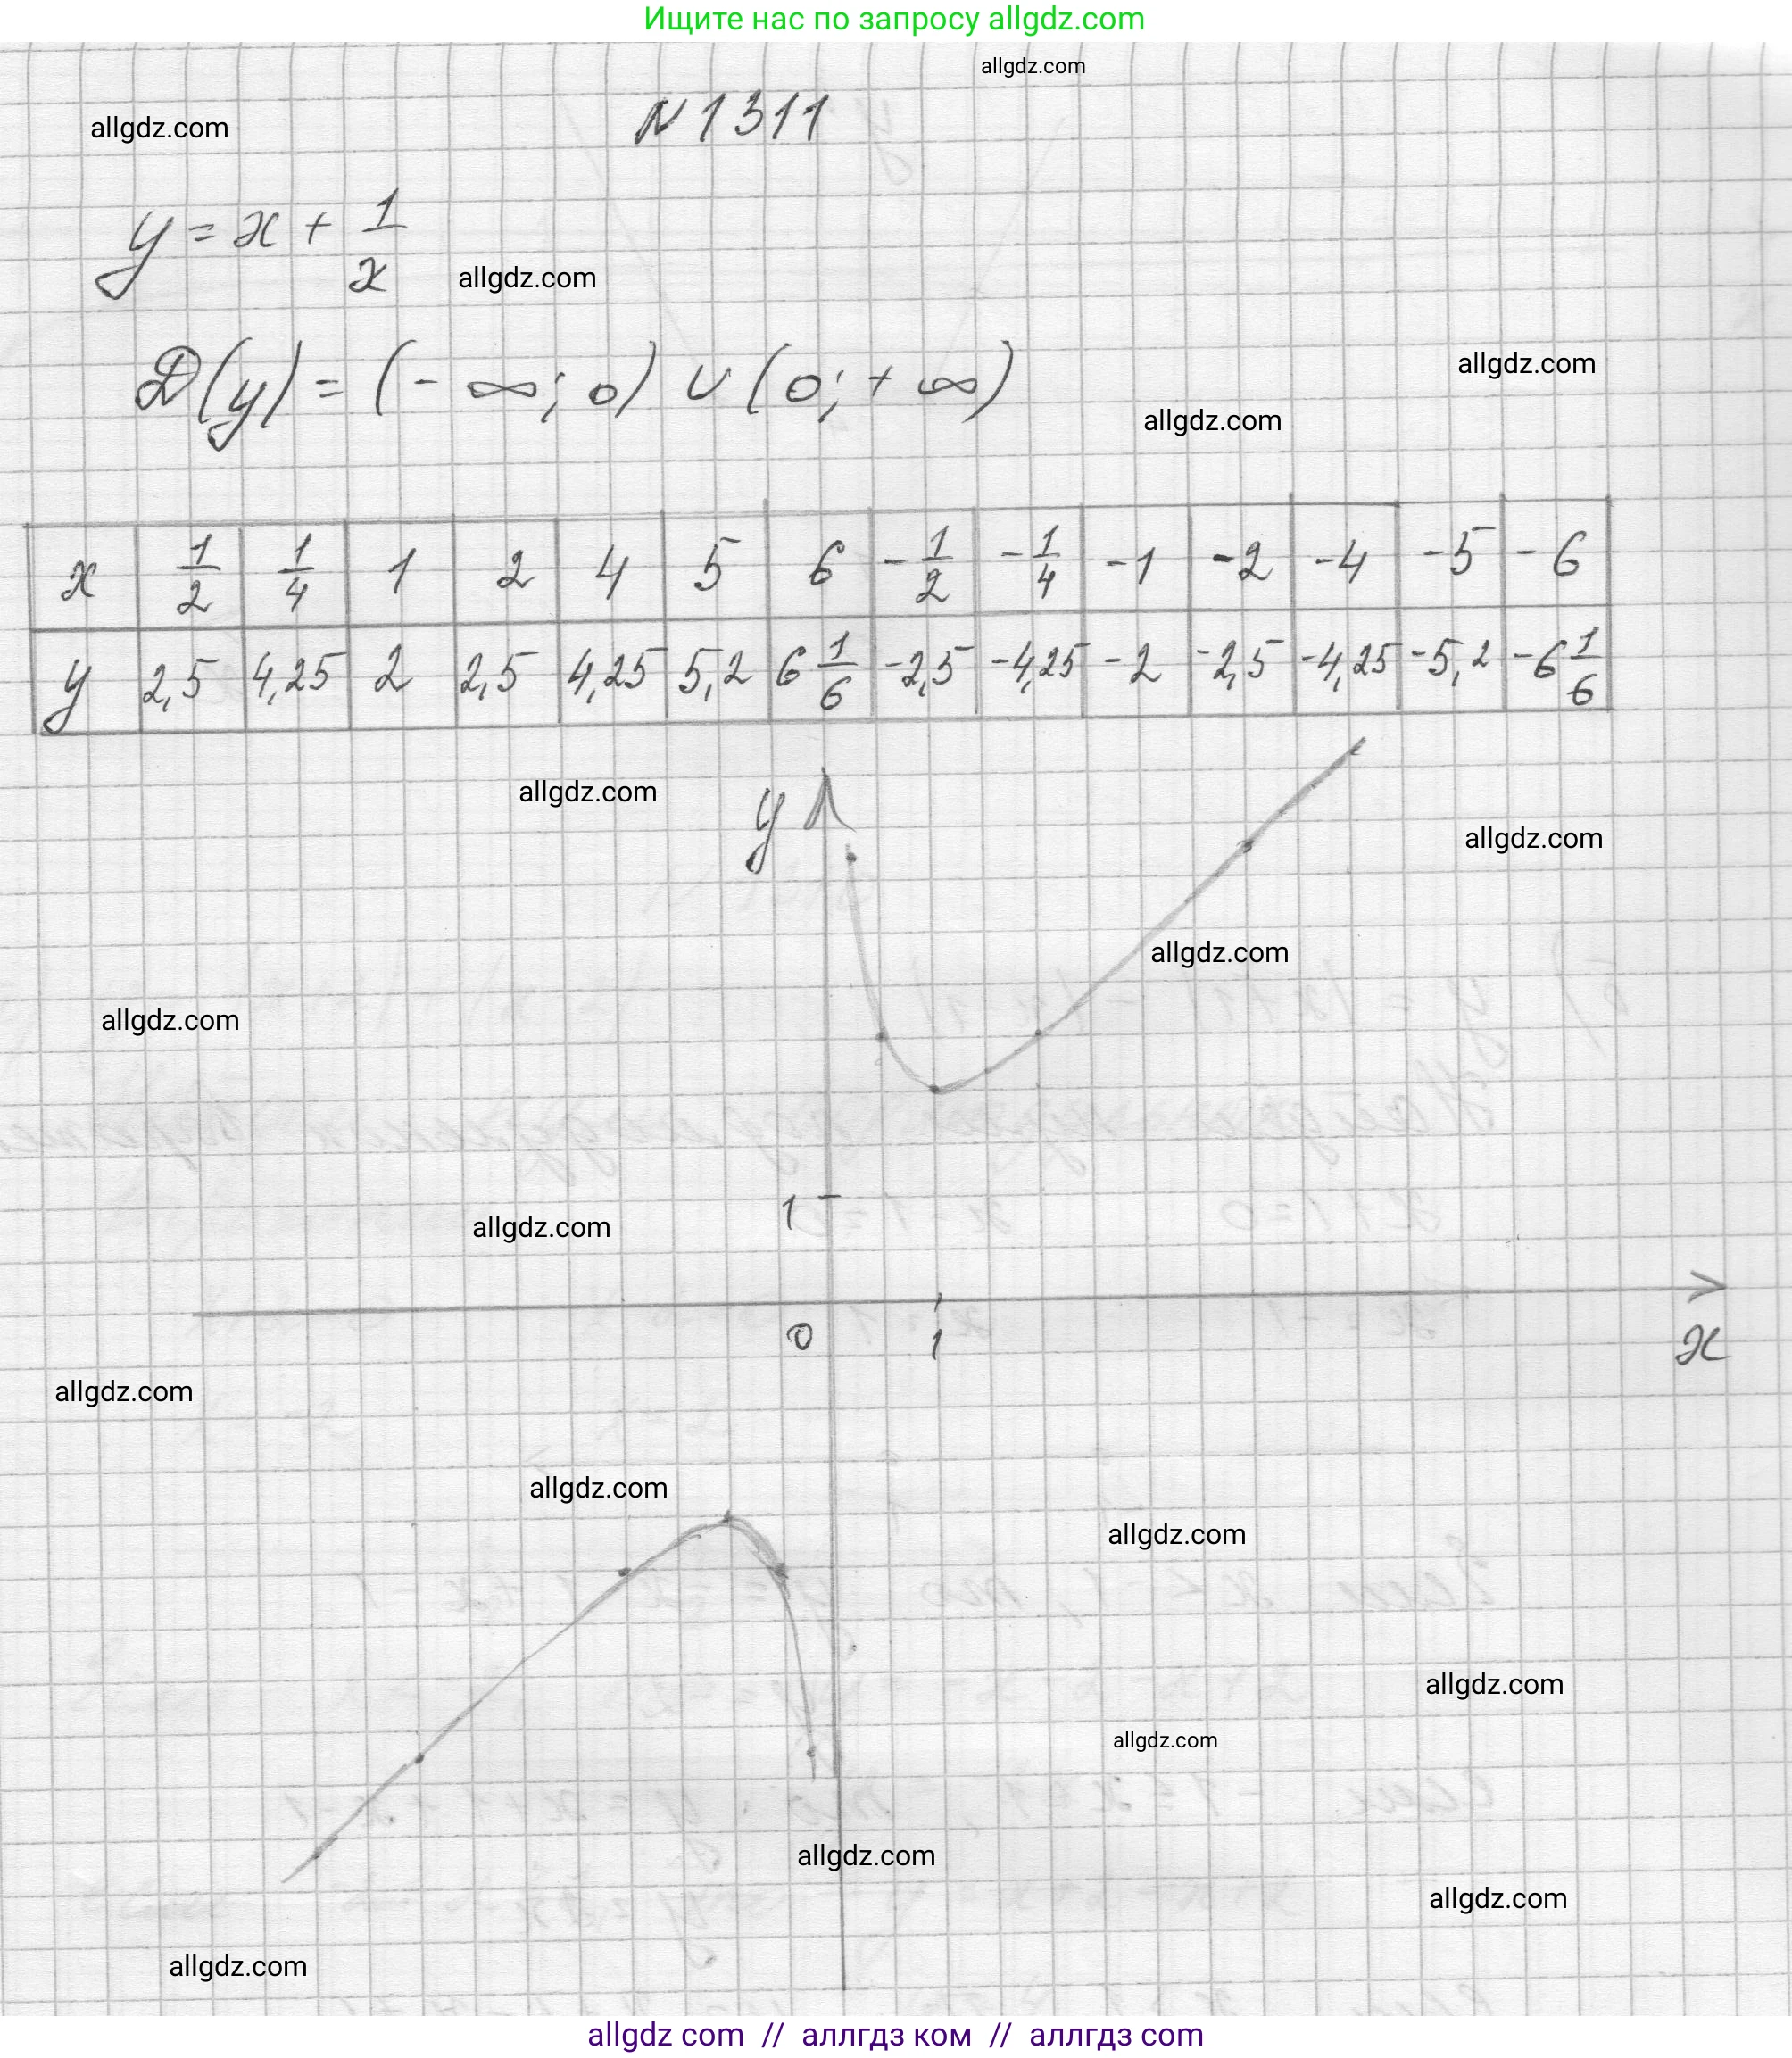 Ищите нас по запросу allgdz.com
allgdz.com
allgdz.com
N 1311
y = x + 1/x
allgdz.com
allgdz.com
D(y) = (-∞; 0) ∪ (0; +∞)
allgdz.com
x 1/2 1/4 1 2 4 5 6 -1/2 -1/4 -1 -2 -4 -5 -6
y 2,5 4,25 2 2,5 4,25 5,2 6 1/6 -2,5 -4,25 -2 -2,5 -4,25 -5,2 -6 1/6
allgdz.com
y
allgdz.com
allgdz.com
allgdz.com
1
allgdz.com
0 1 x
allgdz.com
allgdz.com
allgdz.com
allgdz.com
allgdz.com
allgdz.com
allgdz.com
allgdz.com
allgdz com // аллгдз ком // аллгдз com